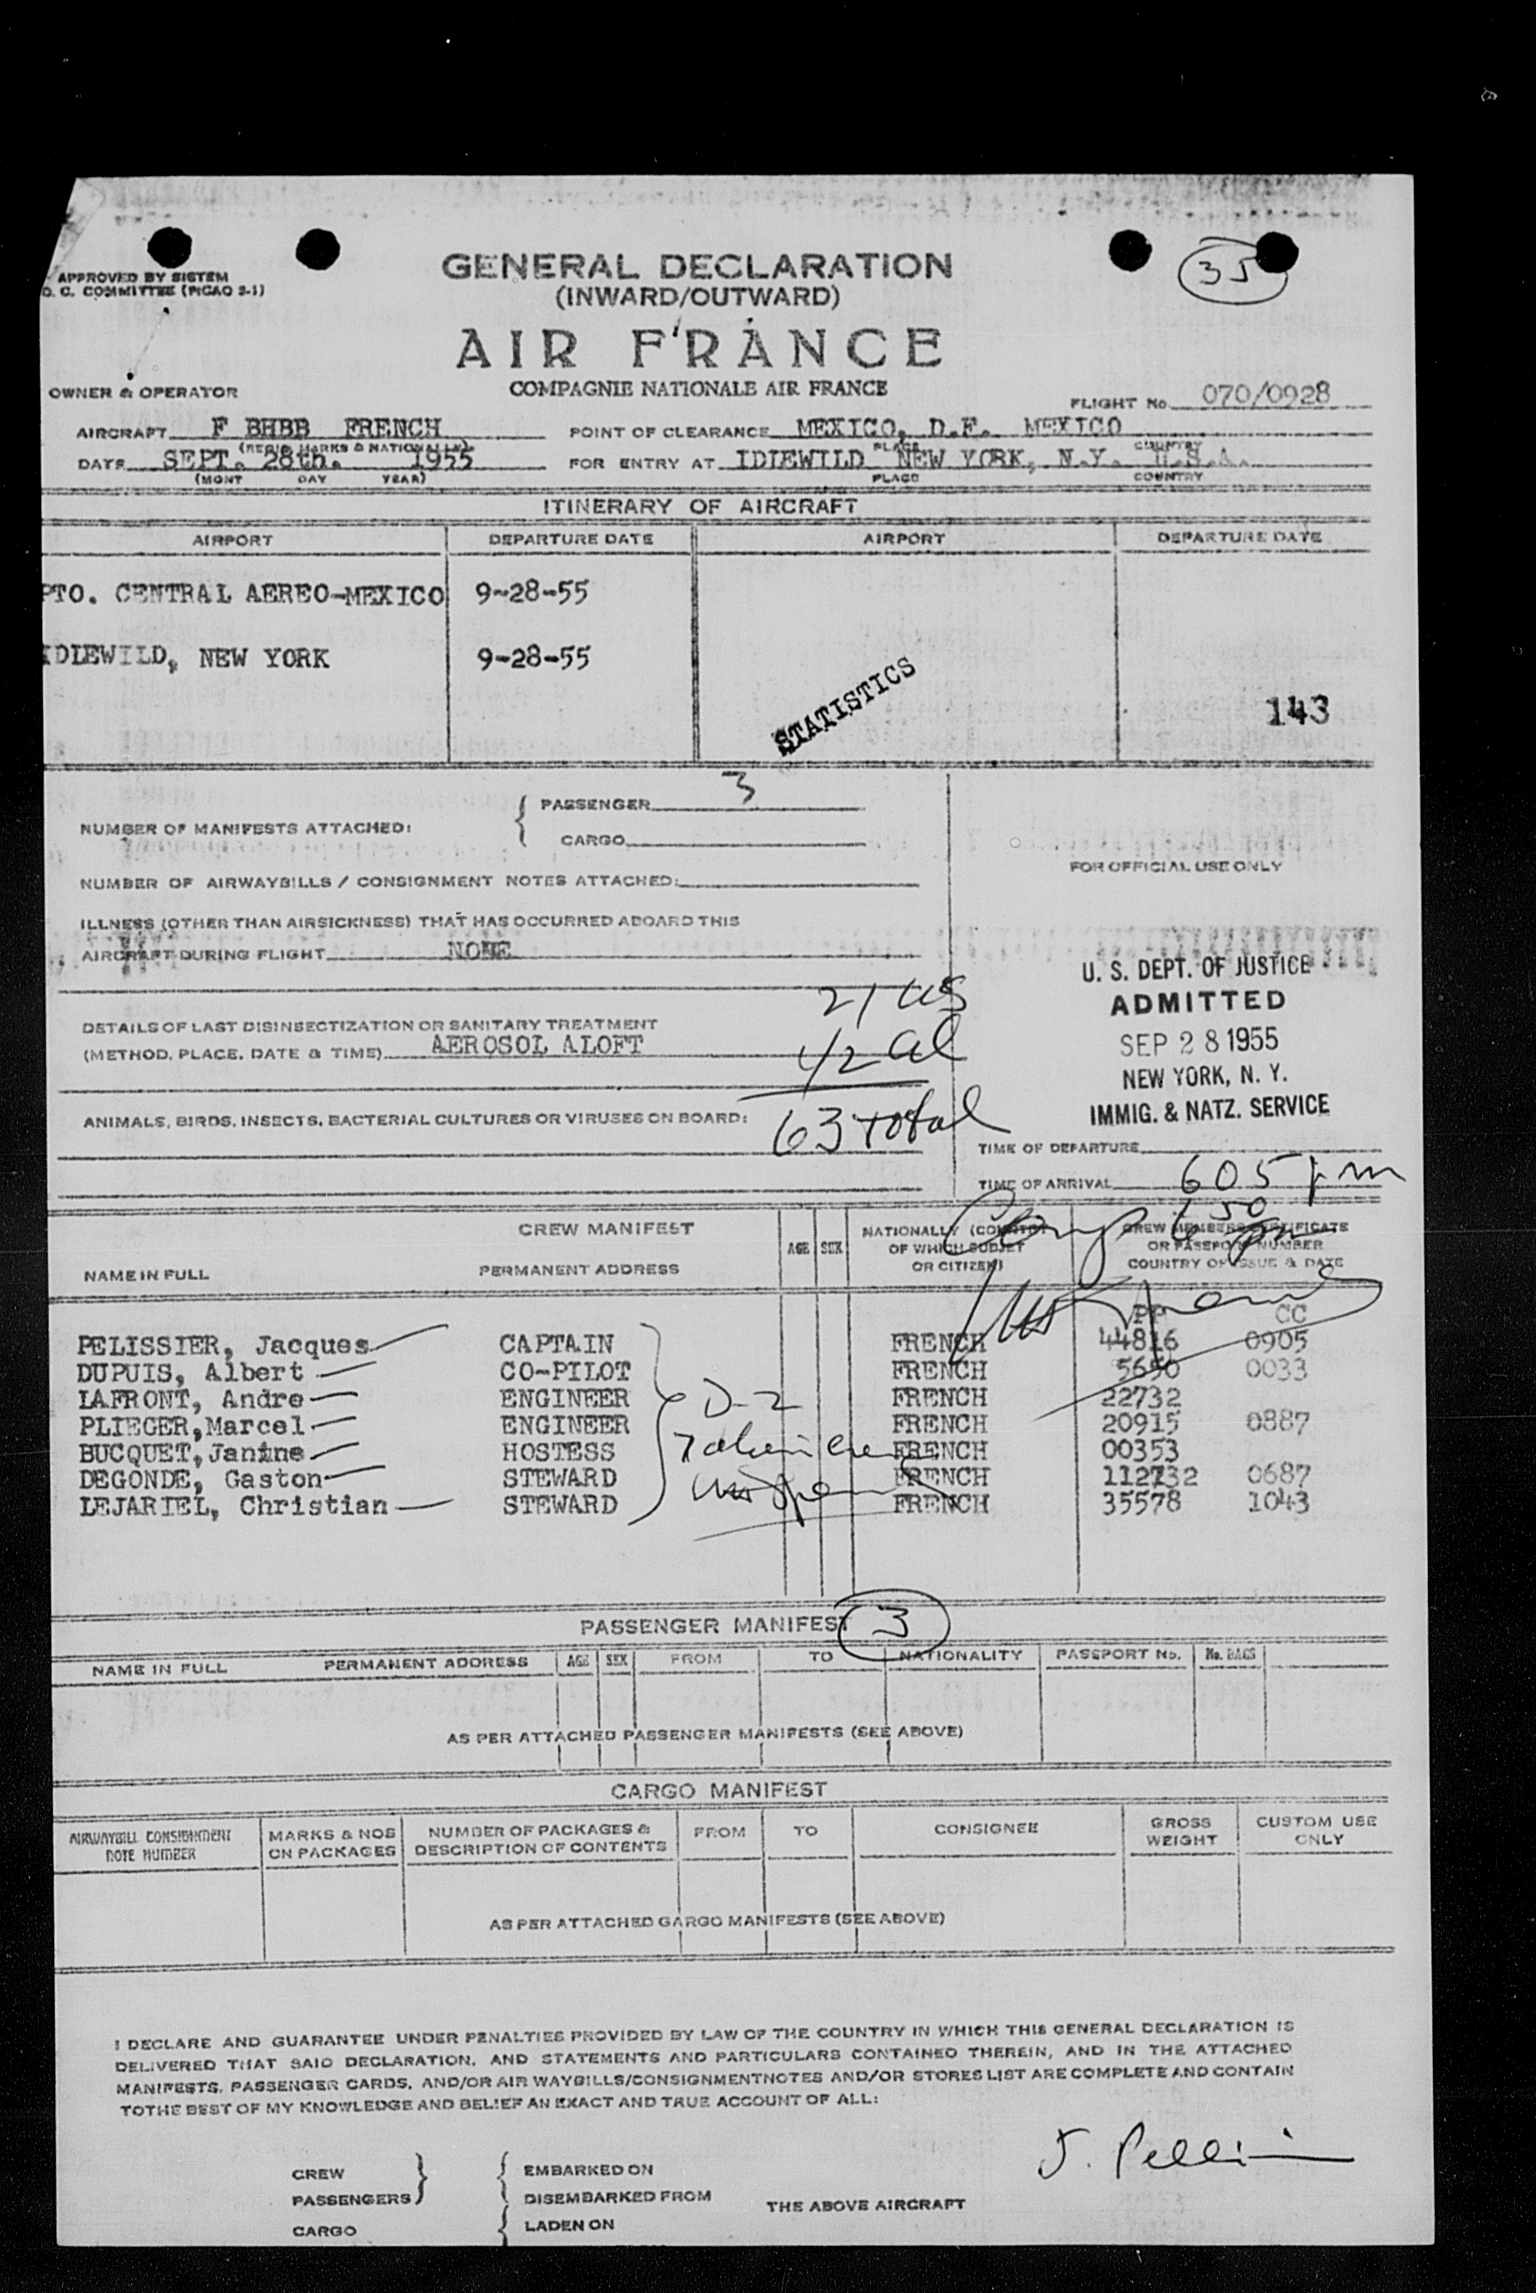 APPROVED BY SISTEM
O. C. COMMITTEE (PICAO 2-1)
GENERAL DECLARATION
35
(INWARD/OUTWARD)
AIR FRANCE
COMPAGNIE NATIONALE AIR FRANCE
OWNER & OPERATOR
FLIGHT No. 070/0928
AIRCRAFT F BHBB FRENCH POINT OF CLEARANCE MEXICO, D.F. MEXICO
(REGIS MARKS & NATIONALITY) PLACE COUNTRY
DATE SEPT. 28th. 1955 FOR ENTRY AT IDIEWILD NEW YORK, N.Y. U.S.A.
(MONT DAY YEAR) PLACE COUNTRY
ITINERARY OF AIRCRAFT
AIRPORT DEPARTURE DATE AIRPORT DEPARTURE DATE
PTO. CENTRAL AEREO-MEXICO 9-28-55
IDLEWILD, NEW YORK 9-28-55
STATISTICS
143
NUMBER OF MANIFESTS ATTACHED: { PASSENGER 3
CARGO
FOR OFFICIAL USE ONLY
NUMBER OF AIRWAYBILLS / CONSIGNMENT NOTES ATTACHED:
ILLNESS (OTHER THAN AIRSICKNESS) THAT HAS OCCURRED ABOARD THIS
AIRCRAFT DURING FLIGHT NONE
U. S. DEPT. OF JUSTICE
ADMITTED
SEP 28 1955
NEW YORK, N. Y.
IMMIG. & NATZ. SERVICE
21 US
DETAILS OF LAST DISINSECTIZATION OR SANITARY TREATMENT
(METHOD, PLACE, DATE & TIME) AEROSOL ALOFT
42 al
ANIMALS, BIRDS, INSECTS, BACTERIAL CULTURES OR VIRUSES ON BOARD:
63 total
TIME OF DEPARTURE
TIME OF ARRIVAL 605 pm
650 pm
CREW MANIFEST
NAME IN FULL PERMANENT ADDRESS AGE SEX NATIONALLY (COUNTRY OF WHICH SUBJET OR CITIZEN) CREW MEMBERS CERTIFICATE OR PASSPORT NUMBER COUNTRY OF ISSUE & DATE
PP CC
PELISSIER, Jacques CAPTAIN FRENCH 44816 0905
DUPUIS, Albert CO-PILOT FRENCH 5650 0033
LAFRONT, Andre ENGINEER FRENCH 22732
PLIEGER,Marcel ENGINEER FRENCH 20915 0887
BUCQUET,Janine HOSTESS FRENCH 00353
DEGONDE, Gaston STEWARD FRENCH 112732 0687
LEJARIEL, Christian STEWARD FRENCH 35578 1043
D-2
PASSENGER MANIFEST 3
NAME IN FULL PERMANENT ADDRESS AGE SEX FROM TO NATIONALITY PASSPORT No. No. BAGS
AS PER ATTACHED PASSENGER MANIFESTS (SEE ABOVE)
CARGO MANIFEST
AIRWAYBILL CONSIGNMENT NOTE NUMBER MARKS & NOS ON PACKAGES NUMBER OF PACKAGES & DESCRIPTION OF CONTENTS FROM TO CONSIGNEE GROSS WEIGHT CUSTOM USE ONLY
AS PER ATTACHED CARGO MANIFESTS (SEE ABOVE)
I DECLARE AND GUARANTEE UNDER PENALTIES PROVIDED BY LAW OF THE COUNTRY IN WHICH THIS GENERAL DECLARATION IS
DELIVERED THAT SAID DECLARATION, AND STATEMENTS AND PARTICULARS CONTAINED THEREIN, AND IN THE ATTACHED
MANIFESTS, PASSENGER CARDS, AND/OR AIR WAYBILLS/CONSIGNMENTNOTES AND/OR STORES LIST ARE COMPLETE AND CONTAIN
TOTHE BEST OF MY KNOWLEDGE AND BELIEF AN EXACT AND TRUE ACCOUNT OF ALL:
CREW } { EMBARKED ON
PASSENGERS } { DISEMBARKED FROM THE ABOVE AIRCRAFT
CARGO { LADEN ON